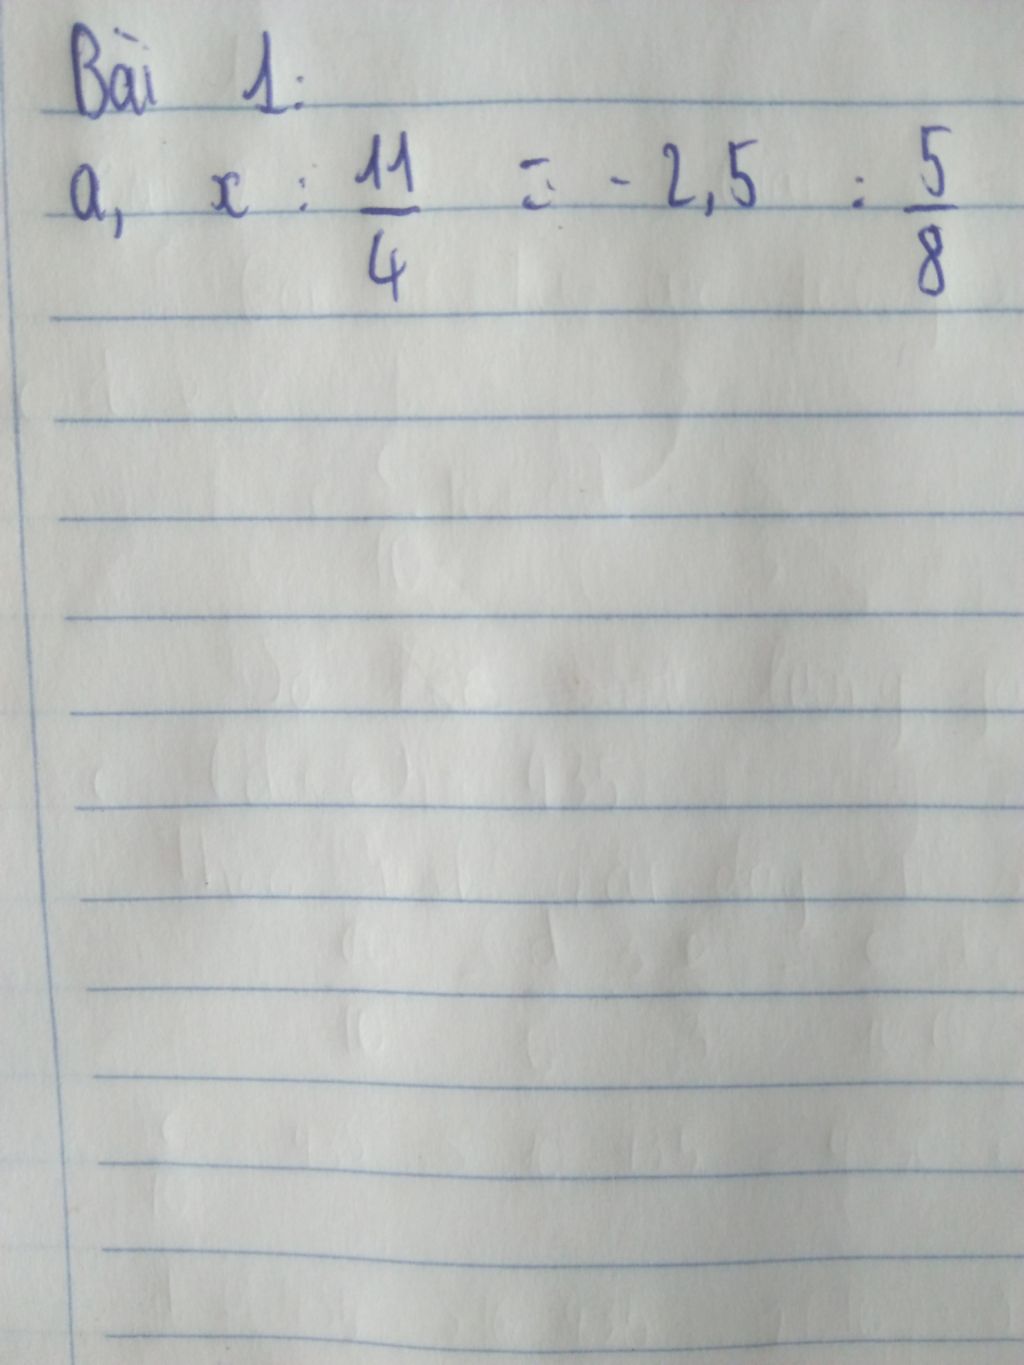 Bài 1:
a, x : 11/4 = -2,5 : 5/8